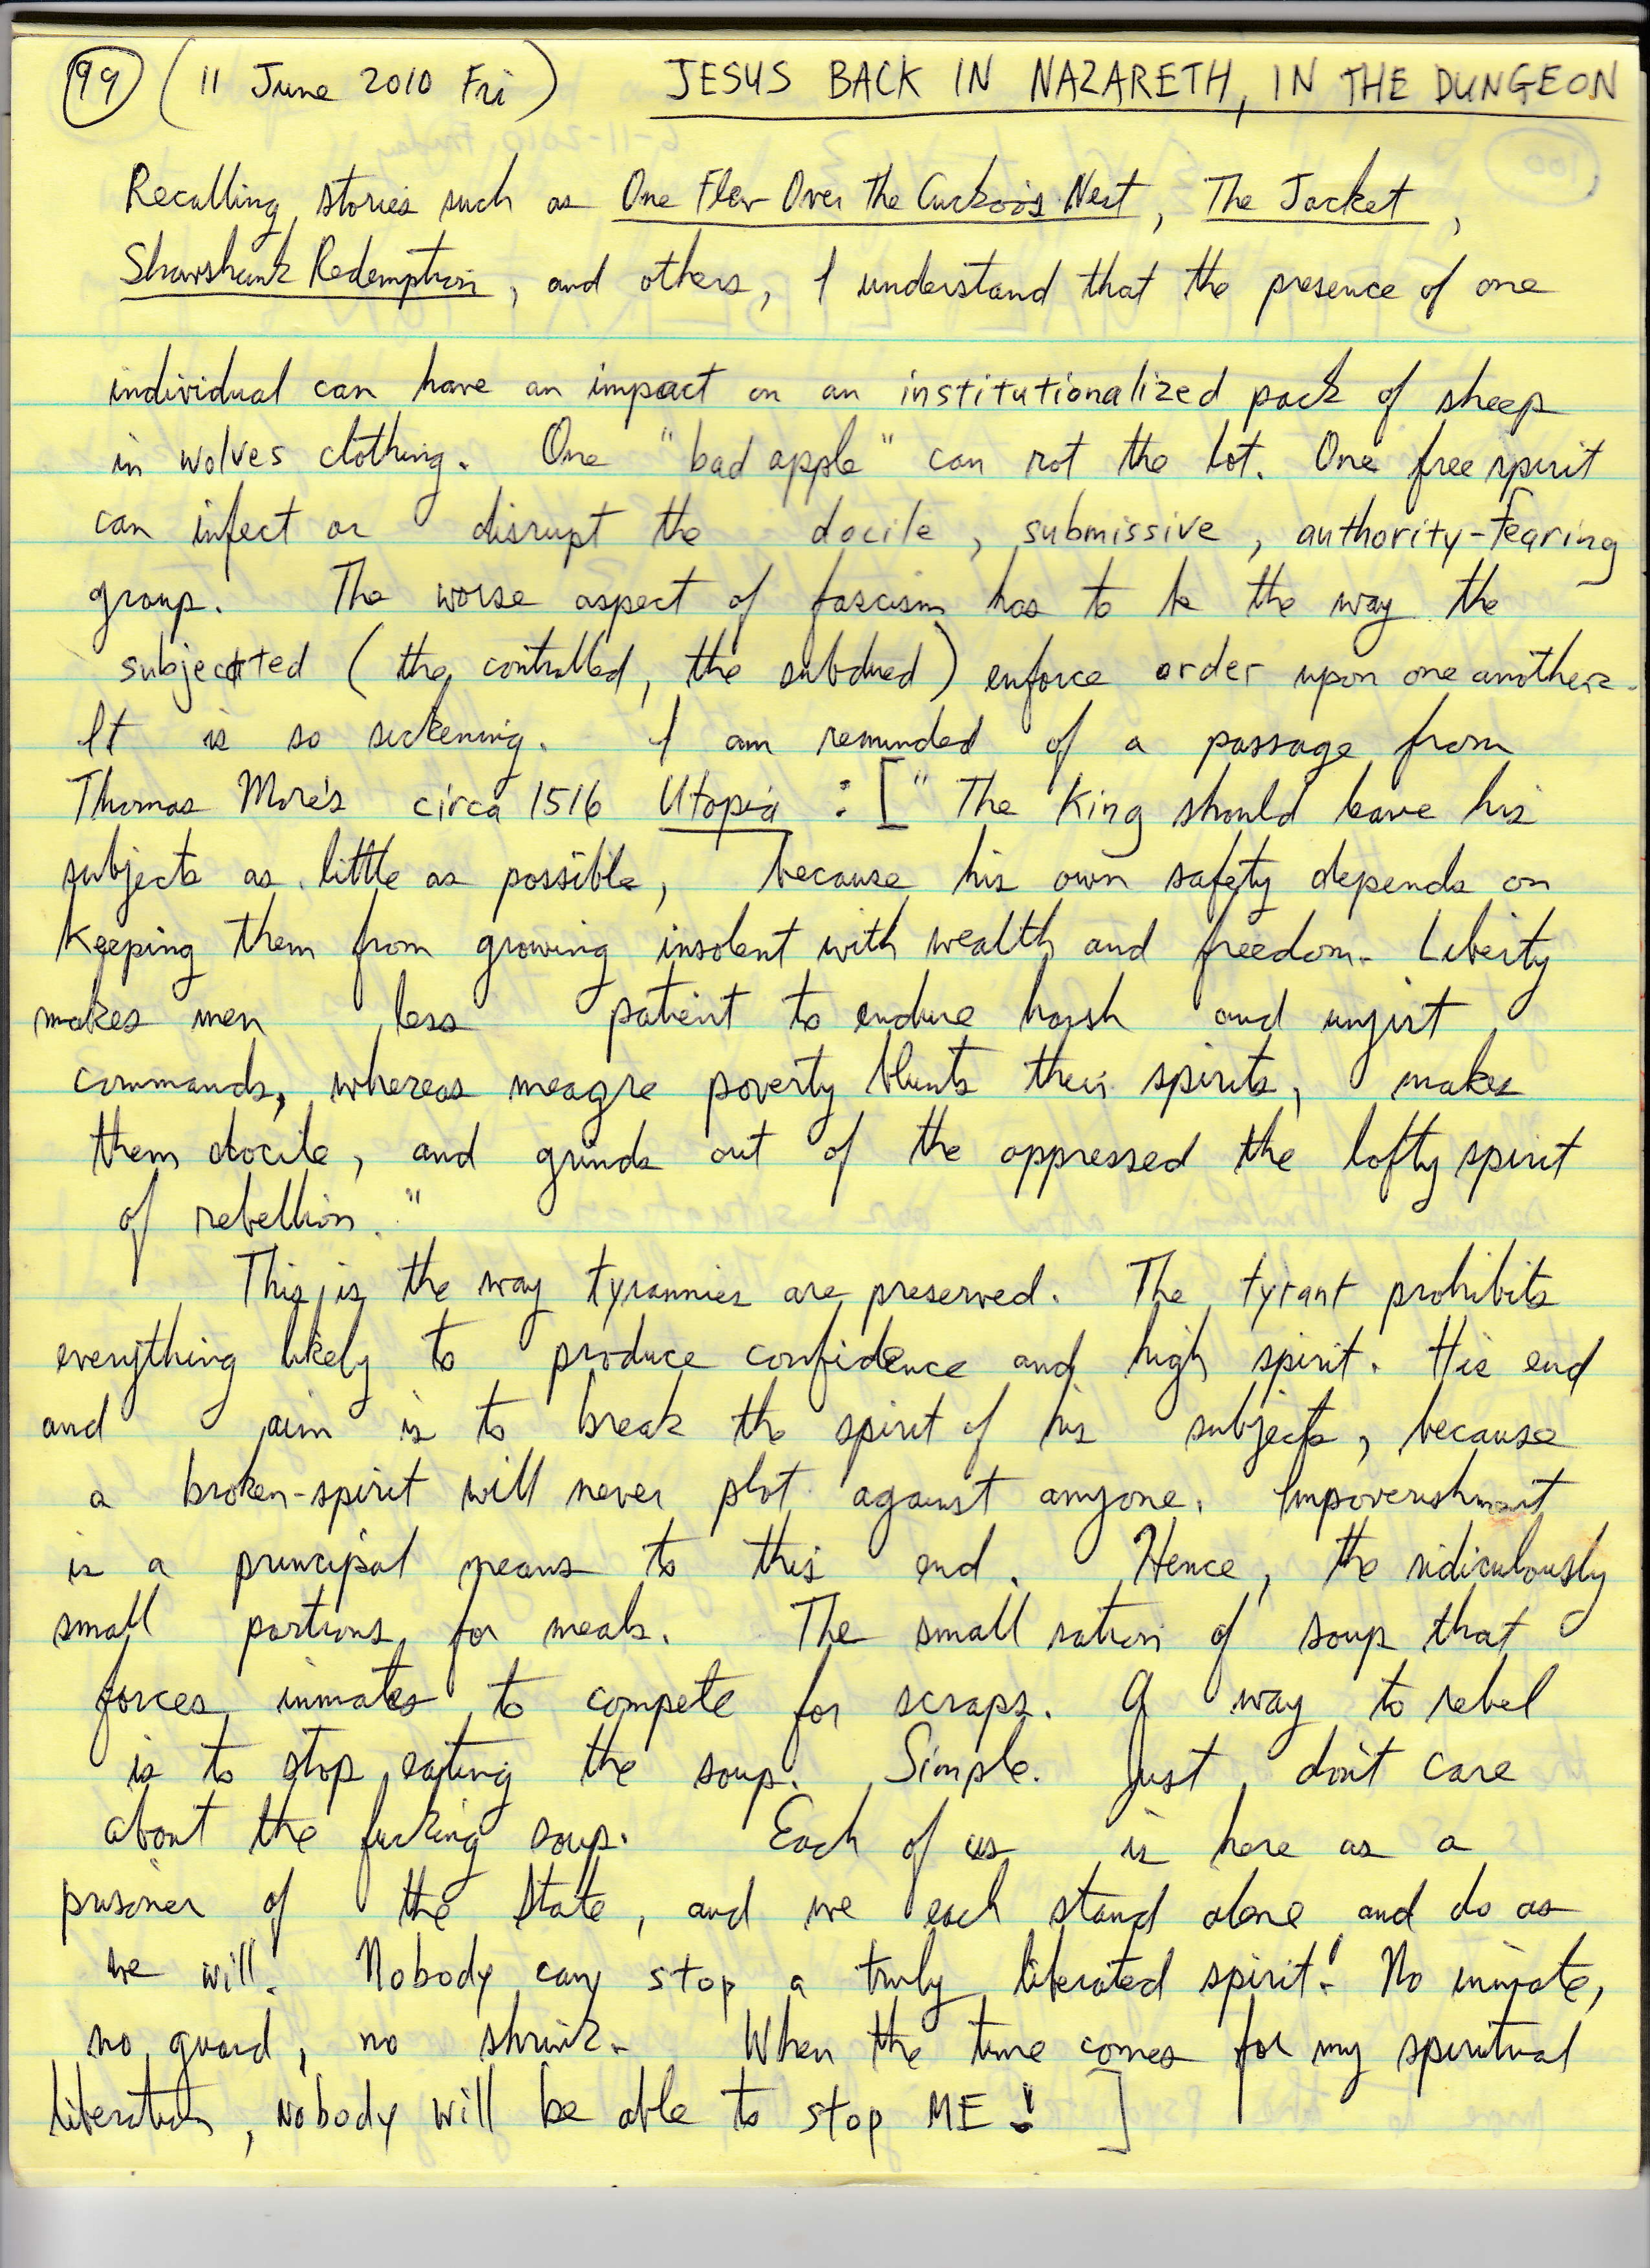 99 ( 11 June 2010 Fri ) JESUS BACK IN NAZARETH, IN THE DUNGEON
Recalling stories such as One Flew Over The Cuckoo's Nest, The Jacket,
Shawshank Redemption, and others, I understand that the presence of one
individual can have an impact on an institutionalized pack of sheep
in wolves clothing. One "bad apple" can rot the lot. One free spirit
can infect or disrupt the docile, submissive, authority-fearing
group. The worse aspect of fascism has to be the way the
subjected (the controlled, the subdued) enforce order upon one another.
It is so sickening. I am reminded of a passage from
Thomas More's circa 1516 Utopia : [ "The King should leave his
subjects as little as possible, because his own safety depends on
keeping them from growing insolent with wealth and freedom. Liberty
makes men less patient to endure harsh and unjust
commands, whereas meagre poverty blunts their spirits, makes
them docile, and grinds out of the oppressed the lofty spirit
of rebellion."
This is the way tyrannies are preserved. The tyrant prohibits
everything likely to produce confidence and high spirit. His end
and aim is to break the spirit of his subjects, because
a broken-spirit will never plot against anyone. Impoverishment
is a principal means to this end. Hence, the ridiculously
small portions for meals. The small ration of soup that
forces inmates to compete for scraps. A way to rebel
is to stop eating the soup. Simple. Just don't care
about the fucking soup. Each of us is here as a
prisoner of the State, and we each stand alone and do as
we will. Nobody can stop a truly liberated spirit! No inmate,
no guard, no shrink. When the time comes for my spiritual
liberation, nobody will be able to stop ME! ]